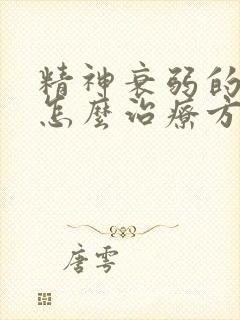 精神衰弱的
怎麼治療方
唐雩